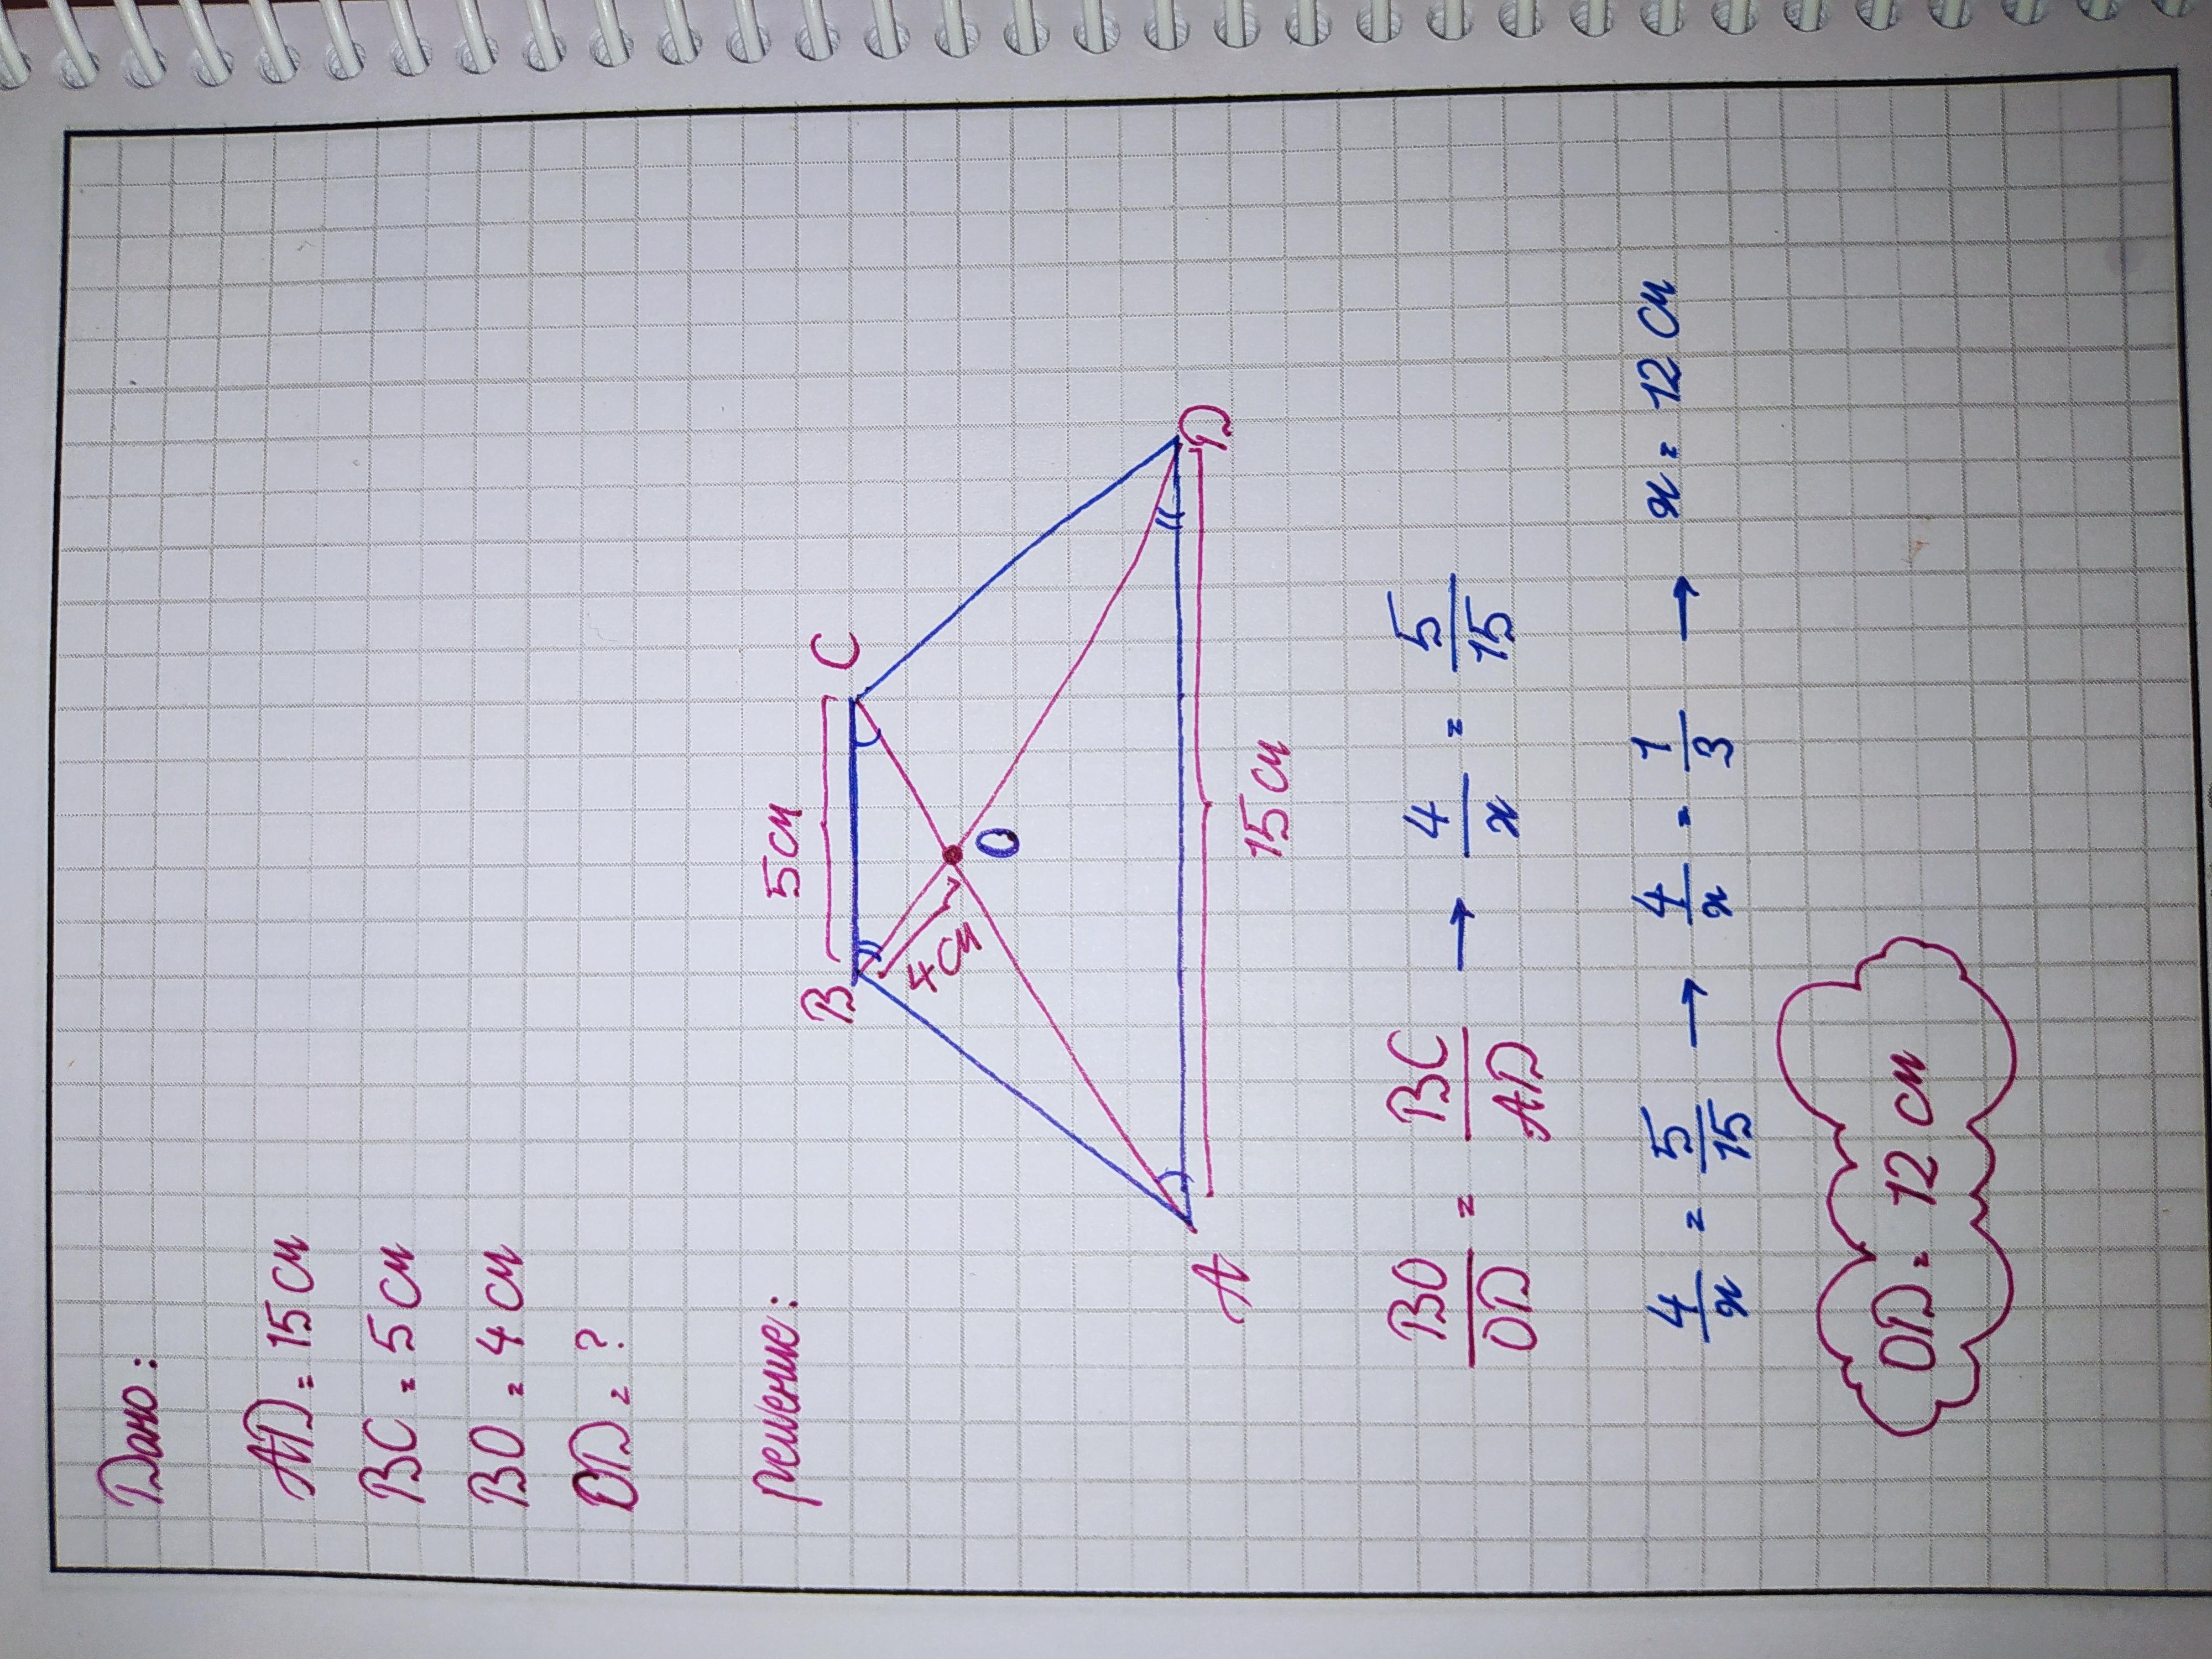 Дано:
AD = 15 см
BC = 5 см
BO = 4 см
OD = ?
решение:
5 см
B C
4 см
O
A D
15 см
BO/OD = BC/AD → 4/x = 5/15
4/x = 5/15 → 4/x = 1/3 → x = 12 см
OD = 12 см